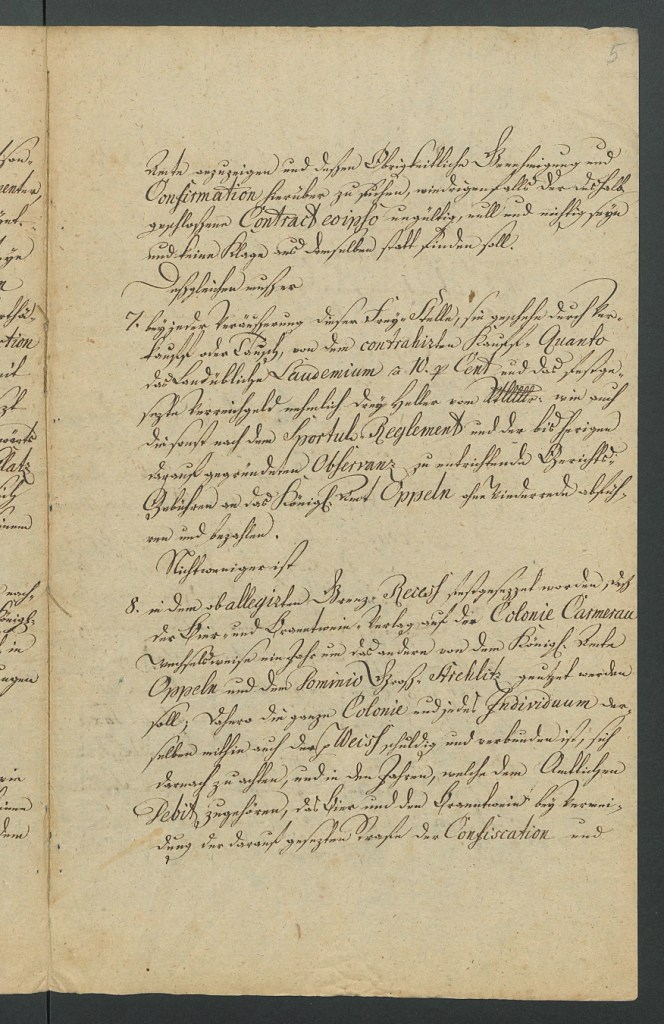 5
Amte anzuzeigen und deßen Obrigkeitliche Genehmigung und
Confirmation hierüber zu suchen, wiedrigenfalls der desfals
geschloßene Contract eo ipso ungültig, null und nichtig seyn
und keine Klage aus demselben statt finden soll.
Desgleichen muß er
7. bey jeder Veräußerung dieser Frey-Stelle, sie geschehe durch Ver-
kauff oder Tausch, von dem contrahirten Kauff-Quanto
das Landübliche Laudemium a 10. p Cent und das festge-
sezte Verreichgeld nehmlich drey Heller vom wie auch
die sonst nach dem Sportul-Reglement und der bisherigen
darauf gegründeten Observanz zu entrichtende Gerichts-
Gebühren an das Königl. Amt Oppeln ohne Wiederrede abfüh-
ren und bezahlen.
Nicht weniger ist
8. in dem ob allegirten Grenz-Recess festgesezzet worden, daß
der Bier- und Brantwein-Verlag auf der Colonie Carmerau
Wechselsweise ein Jahr um das andere von dem Königl. Amte
Oppeln und dem Dominio Groß-Strehlitz genutzet werden
soll; Dahero die ganze Colonie und jedes Individuum der-
selben mithin auch der p Weiss schuldig und verbunden ist, sich
darnach zu achten, und in den Jahren, welche dem Amtlichen
Debit zugehören, das Bier und den Brantwein bey Vermei-
dung der darauf gesezten Strafe der Confiscation und